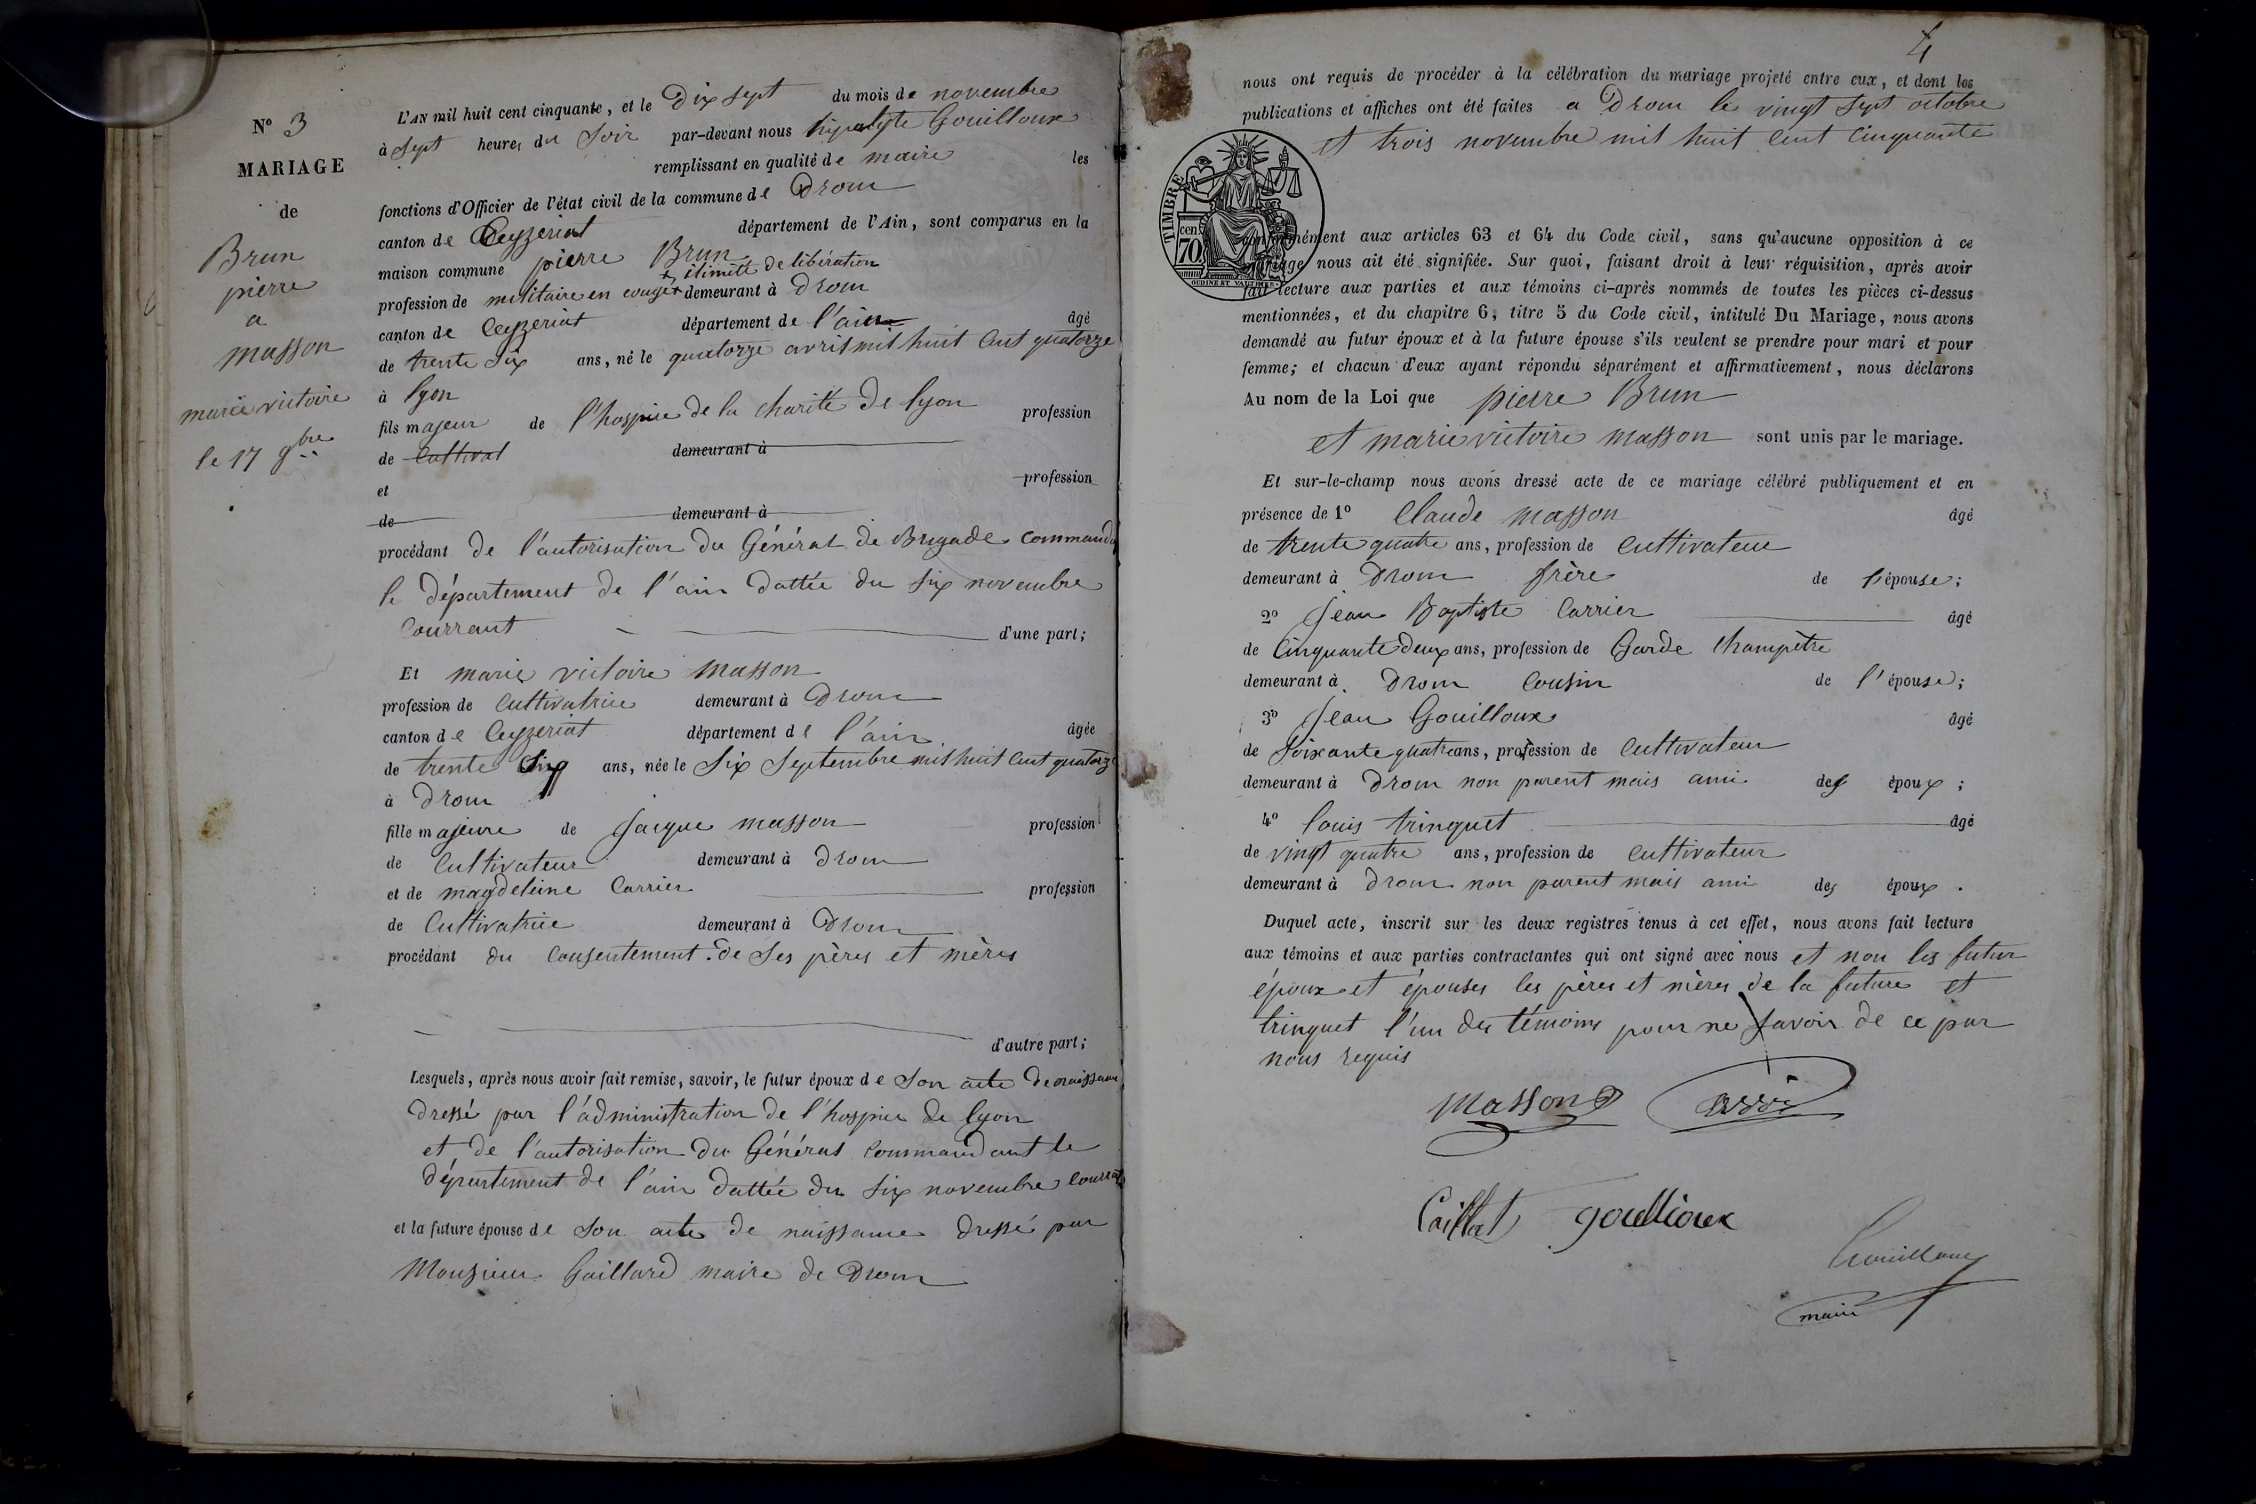 N° 3
MARIAGE
de
Brun
pierre
a
masson
marie victoire
le 17 9bre
L'AN mil huit cent cinquante, et le Dix sept du mois de novembre
à sept heures du soir par-devant nous hypolyte Gouilloux
remplissant en qualité de maire les
fonctions d'Officier de l'état civil de la commune de Drom
canton de Ceyzeriat département de l'Ain, sont comparus en la
maison commune pierre Brun
+ illimité de libération
profession de militaire en congé + demeurant à Drom
canton de Ceyzeriat département de l'ain âgé
de trente six ans, né le quatorze avril mil huit cent quatorze
à lyon
fils majeur de l'hospice de la charité de lyon profession
de cultivat demeurant à
et profession
de demeurant à
procédant de l'autorisation du Général de Brigade command
le département de l'ain dattée du six novembre
courrant d'une part;
Et marie victoire masson
profession de cultivatrice demeurant à Drom
canton de Ceyzeriat département de l'ain âgée
de trente six ans, née le six septembre mil huit cent quatorze
à Drom
fille majeure de jacque masson profession
de cultivateur demeurant à Drom
et de magdeleine Carrier profession
de cultivatrice demeurant à Drom
procédant du consentement de ses pères et mères
d'autre part;
Lesquels, après nous avoir fait remise, savoir, le futur époux de son acte de naissance
dressé par l'administration de l'hospice de lyon
et de l'autorisation du Général commandant le
département de l'ain dattée du six novembre courrant
et la future épouse de son acte de naissance dressé par
Monsieur Gaillard maire de Drom
4
nous ont requis de procéder à la célébration du mariage projeté entre eux, et dont les
publications et affiches ont été faites a Drom le vingt sept octobre
et trois novembre mil huit cent cinquante
TIMBRE
70 cent
OUDINE ET VAUTHIER
conformément aux articles 63 et 64 du Code civil, sans qu'aucune opposition à ce
mariage nous ait été signifiée. Sur quoi, faisant droit à leur réquisition, après avoir
fait lecture aux parties et aux témoins ci-après nommés de toutes les pièces ci-dessus
mentionnées, et du chapitre 6, titre 5 du Code civil, intitulé Du Mariage, nous avons
demandé au futur époux et à la future épouse s'ils veulent se prendre pour mari et pour
femme; et chacun d'eux ayant répondu séparément et affirmativement, nous déclarons
Au nom de la Loi que pierre Brun
et marie victoire masson sont unis par le mariage.
Et sur-le-champ nous avons dressé acte de ce mariage célébré publiquement et en
présence de 1° Claude masson âgé
de trente quatre ans, profession de cultivateur
demeurant à Drom frère de l'épouse;
2° jean Baptiste Carrier âgé
de cinquante deux ans, profession de Garde champètre
demeurant à Drom cousin de l'épouse;
3° jean Gouilloux âgé
de soixante quatre ans, profession de cultivateur
demeurant à Drom non parent mais ami des époux;
4° louis trinquet âgé
de vingt quatre ans, profession de cultivateur
demeurant à Drom non parent mais ami des époux.
Duquel acte, inscrit sur les deux registres tenus à cet effet, nous avons fait lecture
aux témoins et aux parties contractantes qui ont signé avec nous et non les futur
époux et épouses les pères et mères de la future et
trinquet l'un des témoins pour ne savoir de ce par
nous requis
masson
Caillat gouilloux
Gouilloux
maire